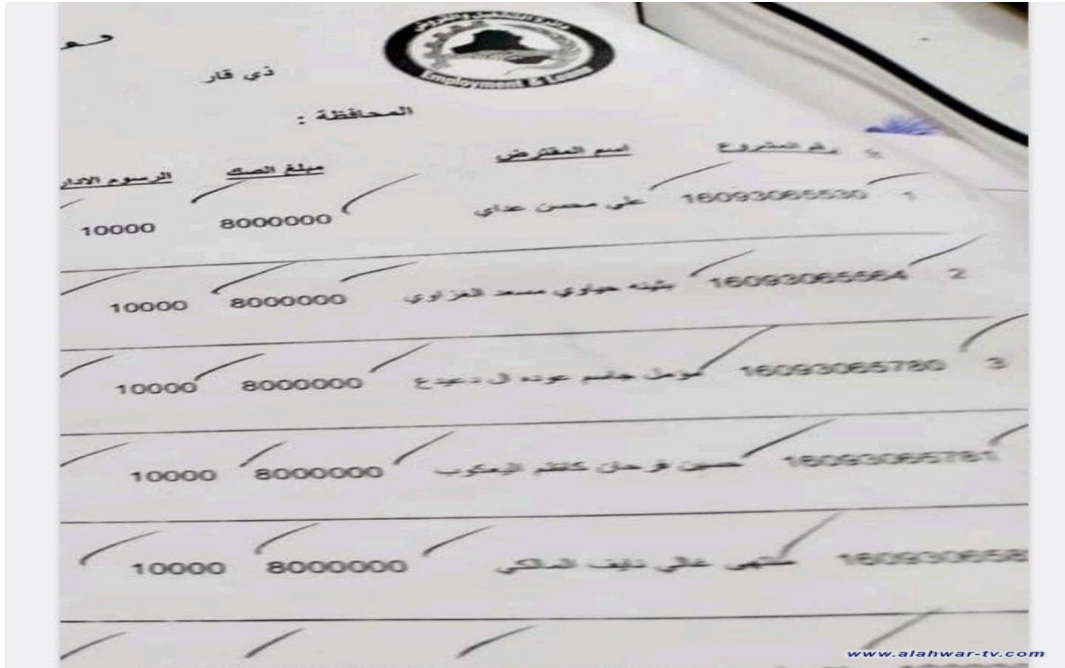 Employment & Loans
ذي قار
المحافظة :
رقم المشروع اسم المقترض مبلغ الصك الرسوم الادار
1 16093065530 علي محسن عداي 8000000 10000
2 16093065564 بثينه حياوي مسعد الغزاوي 8000000 10000
3 16093065780 مؤمل جاسم عوده ال دعيدع 8000000 10000
16093065781 حسين فرحان كاظم اليعكوب 8000000 10000
160930658 منتهى غالي نايف المالكي 8000000 10000
www.alahwar-tv.com